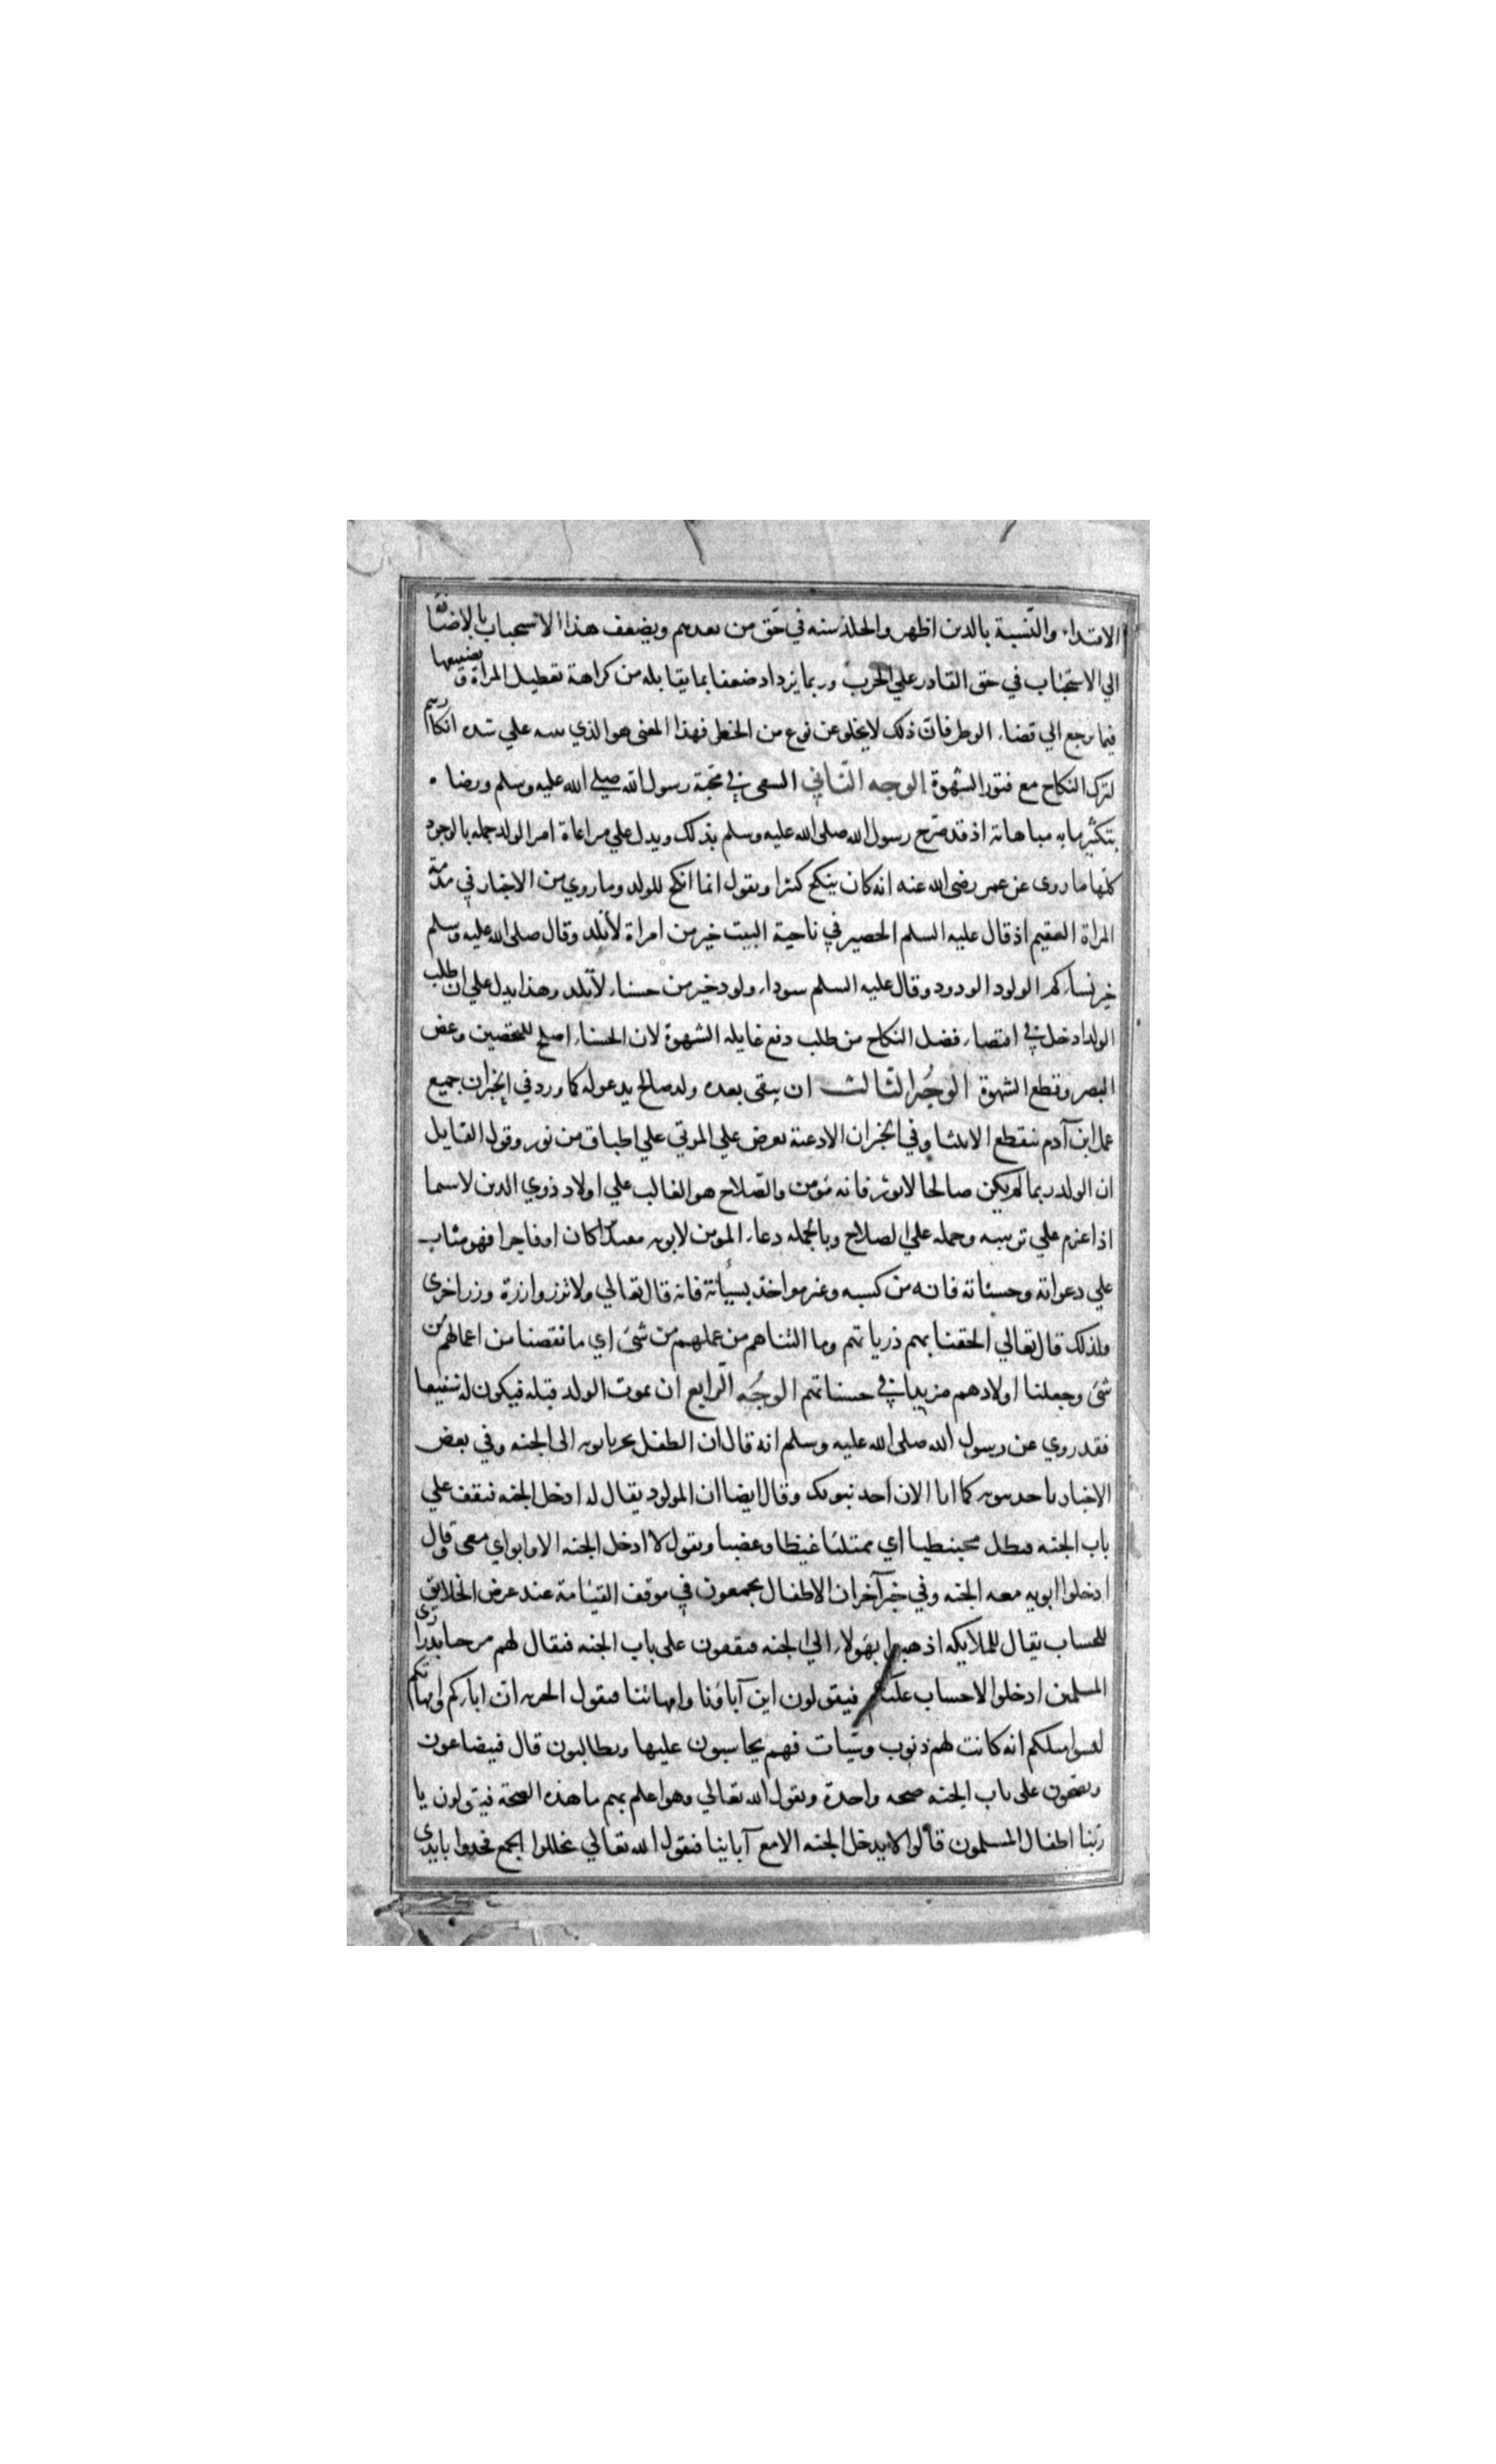 الاقتداء والتشبه بالدين اظهر والحلة سنه في حق من بعدهم ويضعف هذا الاستحباب بالاضافة
الي الاستحباب في حق القادر علي الحرب وربما يزداد ضعفا بما يقابله من كراهة تعطيل المراة وتضييعها
فيما يرجع الي قضاء الوطر فان ذلك لا يخلو عن نوع من الخطر فهذا المعنى هو الذي ينبه علي شده انكارهم
لترك النكاح مع فتور الشهوة الوجه الثاني السعي في محبة رسول الله صلي الله عليه وسلم ورضاه
بتكثير ما به مباهاته اذ قد صرح رسول الله صلى الله عليه وسلم بذلك ويدل علي مراعاة امر الولد جمله بالوجوه
كلها ما روى عن عمر رضى الله عنه انه كان ينكح كثيرا ويقول انما انكح للولد وما روي من الاخبار في مذمة
المراة العقيم اذ قال عليه السلم الحصير في ناحية البيت خير من امراة لا تلد وقال صلى الله عليه وسلم
خير نساءكم الولود الودود وقال عليه السلم سوداء ولود خير من حسناء لا تلد وهذا يدل علي ان طلب
الولد ادخل في اقتضاء فضل النكاح من طلب دفع غايله الشهوة لان الحسناء اصلح للتحصين وغض
البصر وقطع الشهوة الوجه الثالث ان يبقى بعده ولد صالح يدعوله كما ورد في الخبر ان جميع
عمل ابن آدم ينقطع الا ثلثا وفي الخبر ان الادعية تعرض علي الموتي علي اطباق من نور وقول القايل
ان الولد ربما لم يكن صالحا لا يوثر فانه مؤمن والصلاح هو الغالب علي اولاد ذوي الدين لا سيما
اذا عزم علي تربيته وحمله علي الصلاح وبالجمله دعاء المومن لابويه مفيد برا كان او فاجرا فهو مثاب
علي دعواته وحسناته فانه من كسبه وغير مواخذ بسيأته فانه قال تعالي ولا تزر وازرة وزر اخرى
ولذلك قال تعالي الحقنا بهم ذرياتهم وما التناهم من عملهم من شئ اي ما نقصنا من اعمالهم من
شئ وجعلنا اولادهم مزيدا في حسناتهم الوجه الرابع ان يموت الولد قبله فيكون له شفيعا
فقد روي عن رسول الله صلى الله عليه وسلم انه قال ان الطفل يجر بابويه الى الجنه وفي بعض
الاخبار ياخذ بثوبه كما انا الان اخذ بثوبك وقال ايضا ان المولود يقال له ادخل الجنه فيقف علي
باب الجنه فيظل محبنطيا اي ممتلئا غيظا وغضبا ويقول لا ادخل الجنه الا وابواي معى وقال
ادخلوا ابويه معه الجنه وفي خبر آخر ان الاطفال يجمعون في موقف القيامة عند عرض الخلايق
للحساب يقال للملايكه اذهبوا بهولاء الي الجنه فيقفون على باب الجنه فيقال لهم مرحبا بذراري
المسلمين ادخلوا لا حساب عليكم فيقولون اين آباؤنا وامهاتنا فيقول الخزنه ان اباءكم وامهاتكم
ليسوا مثلكم انه كانت لهم ذنوب وسيات فهم يحاسبون عليها ويطالبون قال فيتضاغون
ويضجون على باب الجنه صيحه واحدة ويقول الله تعالي وهو اعلم بهم ما هذه الصيحة فيقولون يا
ربنا اطفال المسلمون قالوا لا يدخل الجنه الا مع آبايئنا فيقول الله تعالي تخللوا الجمع فخذوا بايدى